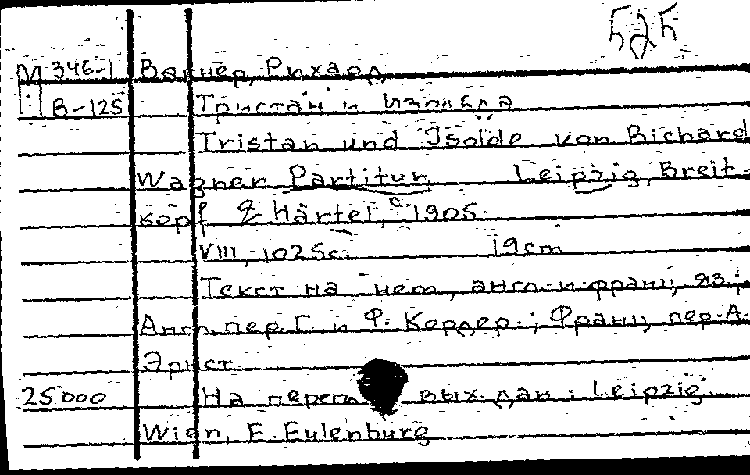 525
М 346-1 Вагнер, Рихард
В-125 Тристан и Изольда
Tristan und Isolde von Richard
Wagner Partitur Leipzig, Breit-
kopf & Härtel, c 1905
VIII, 1025с. 19cm
Текст на нем, англ. и франц, яз.;
Англ. пер. Г. и Ф. Кордер.; Франц, пер. А.
Эрнст
25000 На вых. дан.: Leipzig
Wien, E. Eulenburg